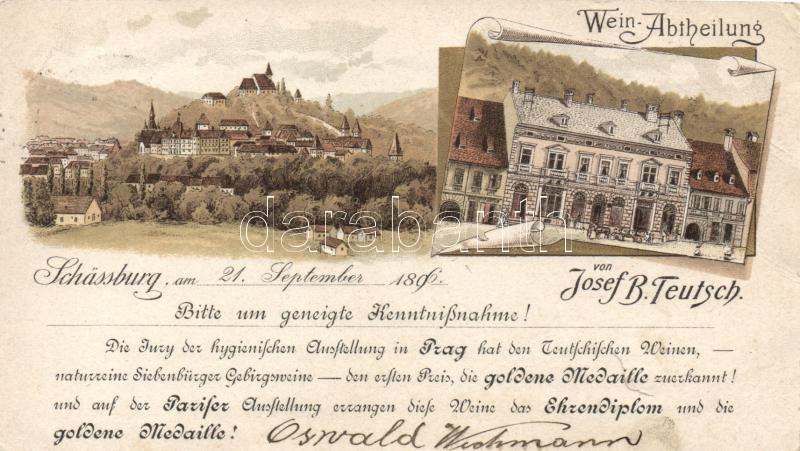 Wein-Abtheilung
darabanth
Schässburg, am 21. September 189
von
Josef B. Teutsch.
Bitte um geneigte Kenntnißnahme!
Die Jury der hygienischen Ausstellung in Prag hat den Teutschischen Weinen, —
naturreine Siebenbürger Gebirgsweine — den ersten Preis, die goldene Medaille zuerkannt!
und auf der Pariser Ausstellung errangen diese Weine das Ehrendiplom und die
goldene Medaille! Oswald